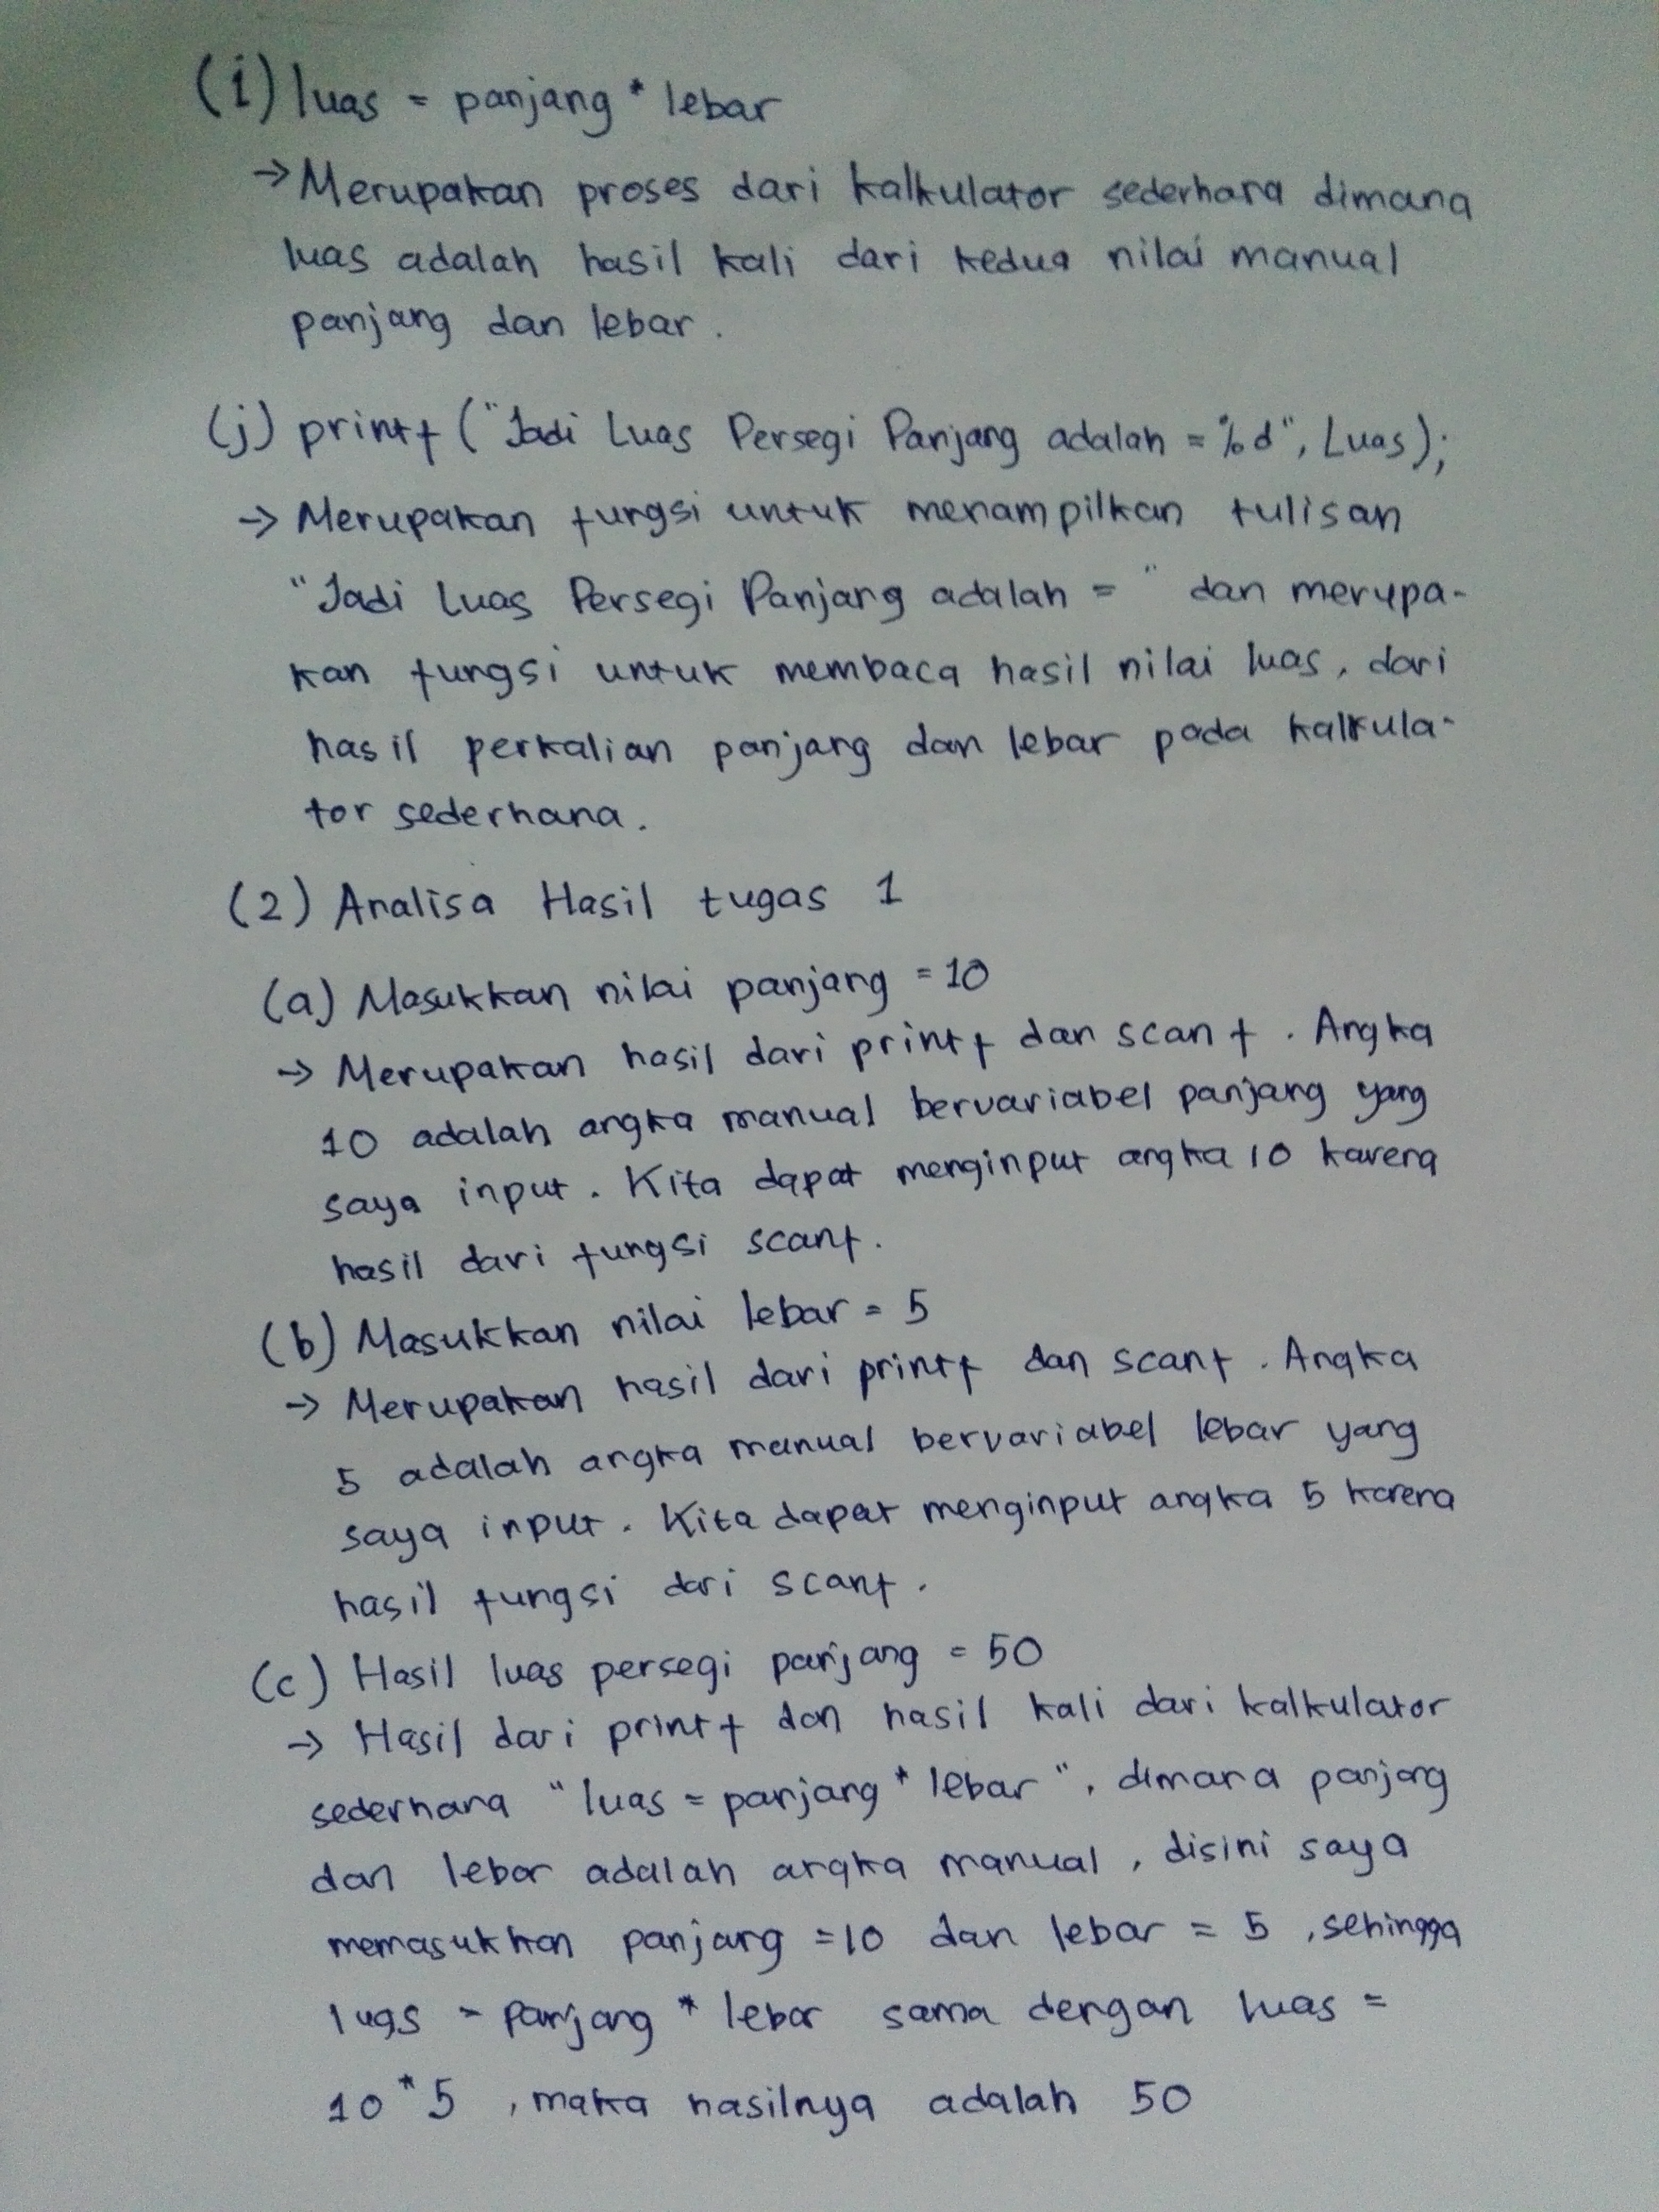 (i) luas = panjang * lebar
→ Merupakan proses dari kalkulator sederhana dimana
luas adalah hasil kali dari kedua nilai manual
panjang dan lebar.
(j) printf ("Jadi Luas Persegi Panjang adalah = %d", Luas);
→ Merupakan fungsi untuk menampilkan tulisan
"Jadi Luas Persegi Panjang adalah = " dan merupa-
kan fungsi untuk membaca hasil nilai luas, dari
hasil perkalian panjang dan lebar pada kalkula-
tor sederhana.
(2) Analisa Hasil tugas 1
(a) Masukkan nilai panjang = 10
→ Merupakan hasil dari printf dan scanf. Angka
10 adalah angka manual bervariabel panjang yang
saya input. Kita dapat menginput angka 10 karena
hasil dari fungsi scanf.
(b) Masukkan nilai lebar = 5
→ Merupakan hasil dari printf dan scanf. Angka
5 adalah angka manual bervariabel lebar yang
saya input. Kita dapat menginput angka 5 karena
hasil fungsi dari scanf.
(c) Hasil luas persegi panjang = 50
→ Hasil dari printf dan hasil kali dari kalkulator
sederhana "luas = panjang * lebar", dimana panjang
dan lebar adalah angka manual, disini saya
memasukkan panjang = 10 dan lebar = 5, sehingga
luas = panjang * lebar sama dengan luas =
10 * 5, maka hasilnya adalah 50